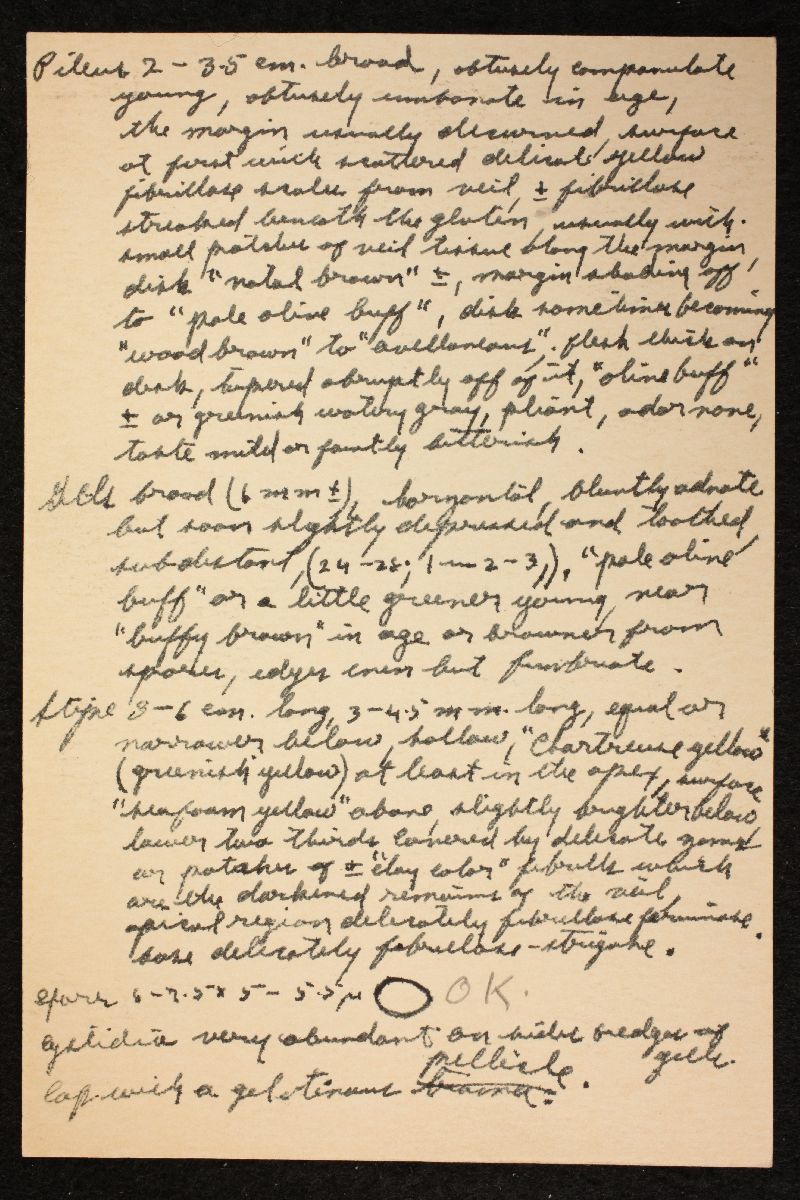 Pileus 2 - 3.5 cm. broad, obtusely companulate
young, obtusely umbonate in age,
the margin usually decurved, surface
at first with scattered delicate yellow
fibrillose scales from veil, ± fibrillose
streaked beneath the gluten, usually with
small patches of veil tissue along the margin,
disk "natal brown" ±, margin shading off
to "pale olive buff", disk sometimes becoming
"wood brown" to "avellaneous". flesh thick on
disk, tapered abruptly off of it, "olive buff"
± or greenish watery gray, pliant, odor none,
taste mild or faintly bitterish.
Gills broad (6 mm ±), horizontal, bluntly adnate
but soon slightly depressed and toothed,
subdistant, (24 - 28; 1 - 2 - 3,), "pale olive
buff" or a little greener young, near
"buffy brown" in age or browner from
spores, edges even but fimbriate.
Stipe 3 - 6 cm. long, 3 - 4.5 mm. long, equal or
narrower below, hollow, "Chartreuse yellow"
(greenish yellow) at least in the apex, surface
"seafoam yellow" above, slightly brighter below,
lower two thirds covered by delicate zones
or patches of ± "clay color" fibrils which
are the darkened remains of the veil,
apical region delicately fibrillose pruinose.
base delicately fibrillose - strigose.
spores 6 - 7.5 x 5 - 5.5 µ OK.
cystidia very abundant on sides & edges of
gills.
Cap with a gelatinous pellicle.